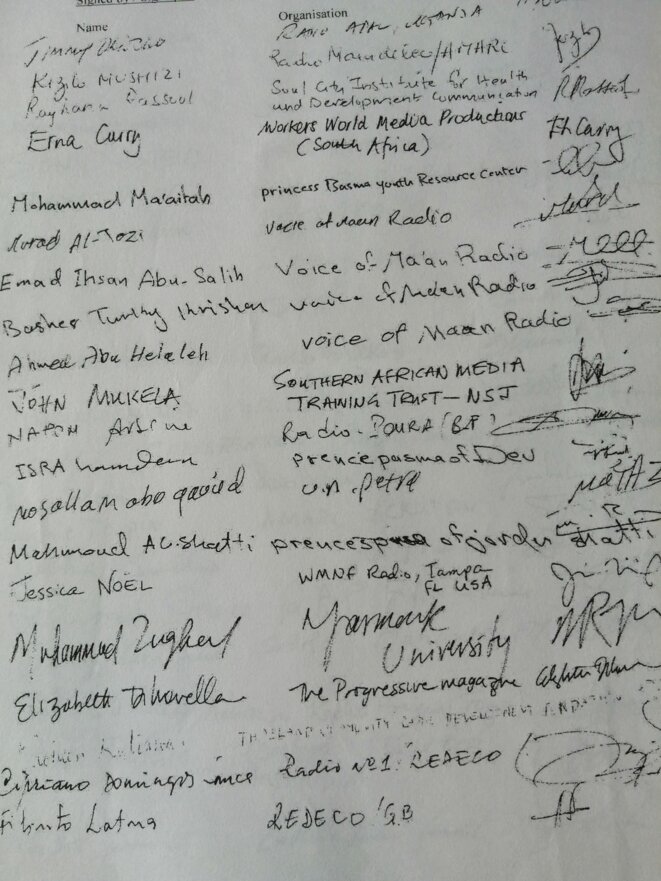 Signed by
Name Organisation
Jimmy Okello RADIO APAC, UGANDA
Kizito MUSHIZI Radio Maendeleo/AMARC
Rayhana Rassool Soul City Institute for Health
and Development Communication
Erna Curry Workers World Media Productions
(South Africa) EhCurry
Mohammad Ma'aitah princess Basma youth Resource Center
Murad Al-Jazi voice of Maan Radio
Emad Ihsan Abu-Salih Voice of Ma'an Radio
Basher Turky Khrishan voice of Maan Radio
Ahmed Abu Helaleh voice of Maan Radio
JOHN MUKELA SOUTHERN AFRICAN MEDIA
TRAINING TRUST – NSJ
NAPON Radio (BF)
ISRA hamdan prence pasma of Dev
mosallam abo qaoied u.n. petra
Mahmoud AL.shatti of jordan shatti
Jessica NOËL WMNF Radio, Tampa
FL USA
Muhammad Yarmouk
University
Elizabeth DiNovella The Progressive magazine
COMMUNITY DEVELOPMENT FUNDATION
Cipriano Domingos Radio nº1 REDECO
Filinto REDECO GB